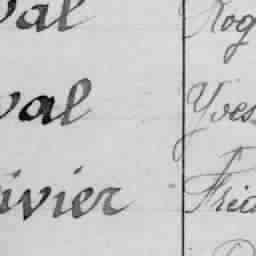 val Rog
val Yves
ivier Frid